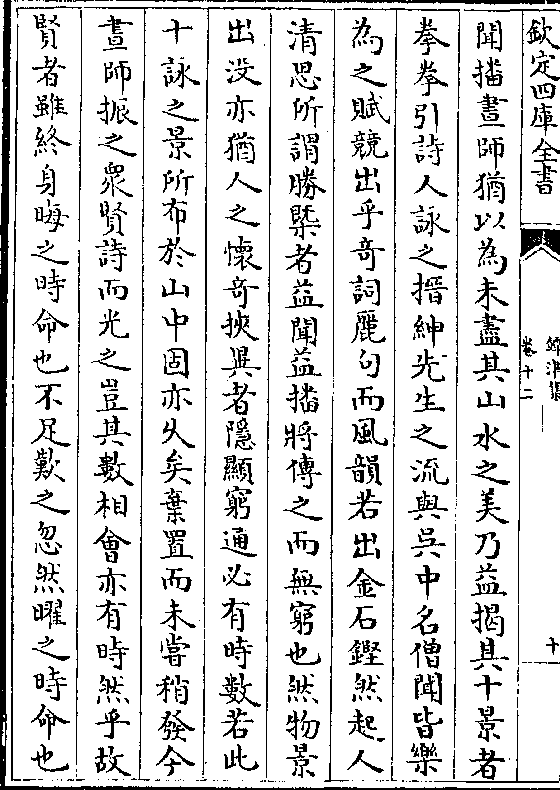 欽定四庫全書
卷十二
十
聞播晝師猶以為未盡其山水之美乃益揭其十景者
拳拳引詩人詠之搢紳先生之流與吳中名僧聞皆樂
為之賦競出乎奇詞麗句而風韻若出金石鏗然起人
清思所謂勝槩者益聞益播將傳之而無窮也然物景
出没亦猶人之懷奇挾異者隱顯窮通必有時數若此
十詠之景所布於山中固亦乆矣棄置而未嘗稍發今
晝師振之衆賢詩而光之豈其數相會亦有時然乎故
賢者雖終身晦之時命也不足歎之忽然曜之時命也